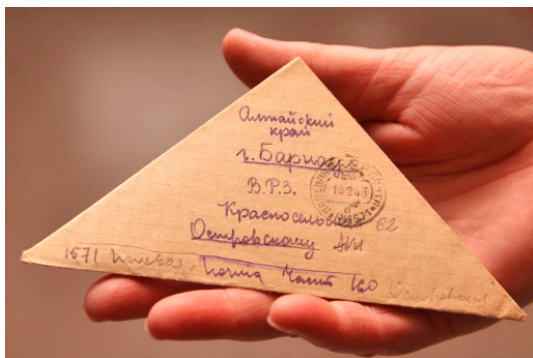 Алтайский
край
г. Барнаул
В.Р.З.
Красносельская 62
Островскому
1571 Полевая Почта Часть 160 Островский